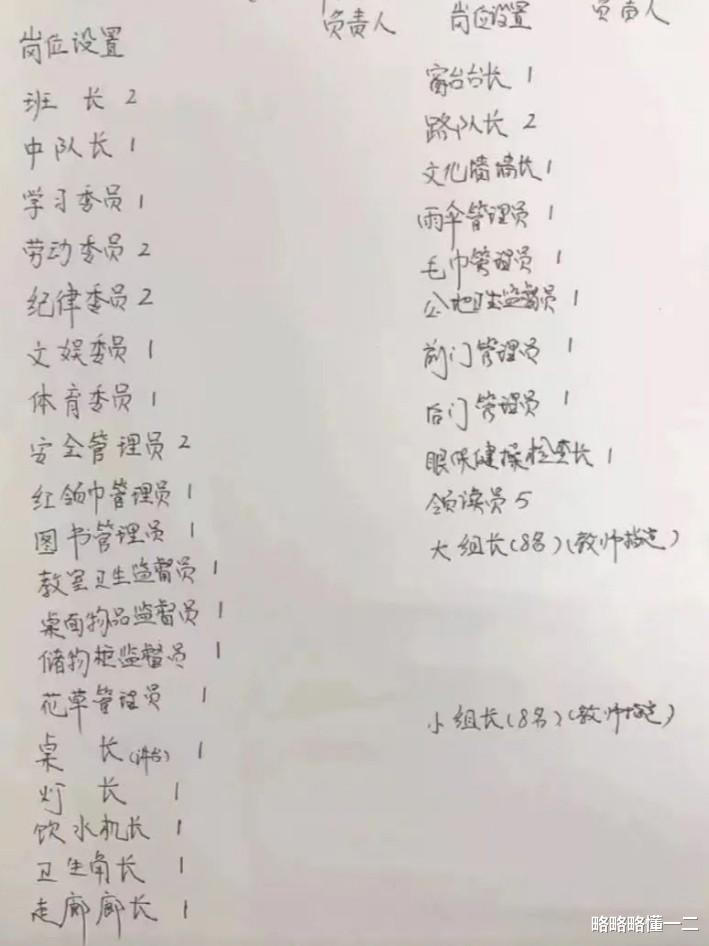 岗位设置
负责人
岗位设置
负责人
班 长 2
中队长 1
学习委员 1
劳动委员 2
纪律委员 2
文娱委员 1
体育委员 1
安全管理员 2
红领巾管理员 1
图书管理员 1
教室卫生监督员 1
桌面物品监督员 1
储物柜监督员 1
花草管理员 1
桌 长(讲台) 1
灯 长 1
饮水机长 1
卫生角长 1
走廊廊长 1
窗台台长 1
路队长 2
文化墙墙长 1
雨伞管理员 1
毛巾管理员 1
公地卫生监督员 1
前门管理员 1
后门管理员 1
眼保健操检查长 1
领读员 5
大组长(8名)(教师指定)
小组长(8名)(教师指定)
略略略懂一二